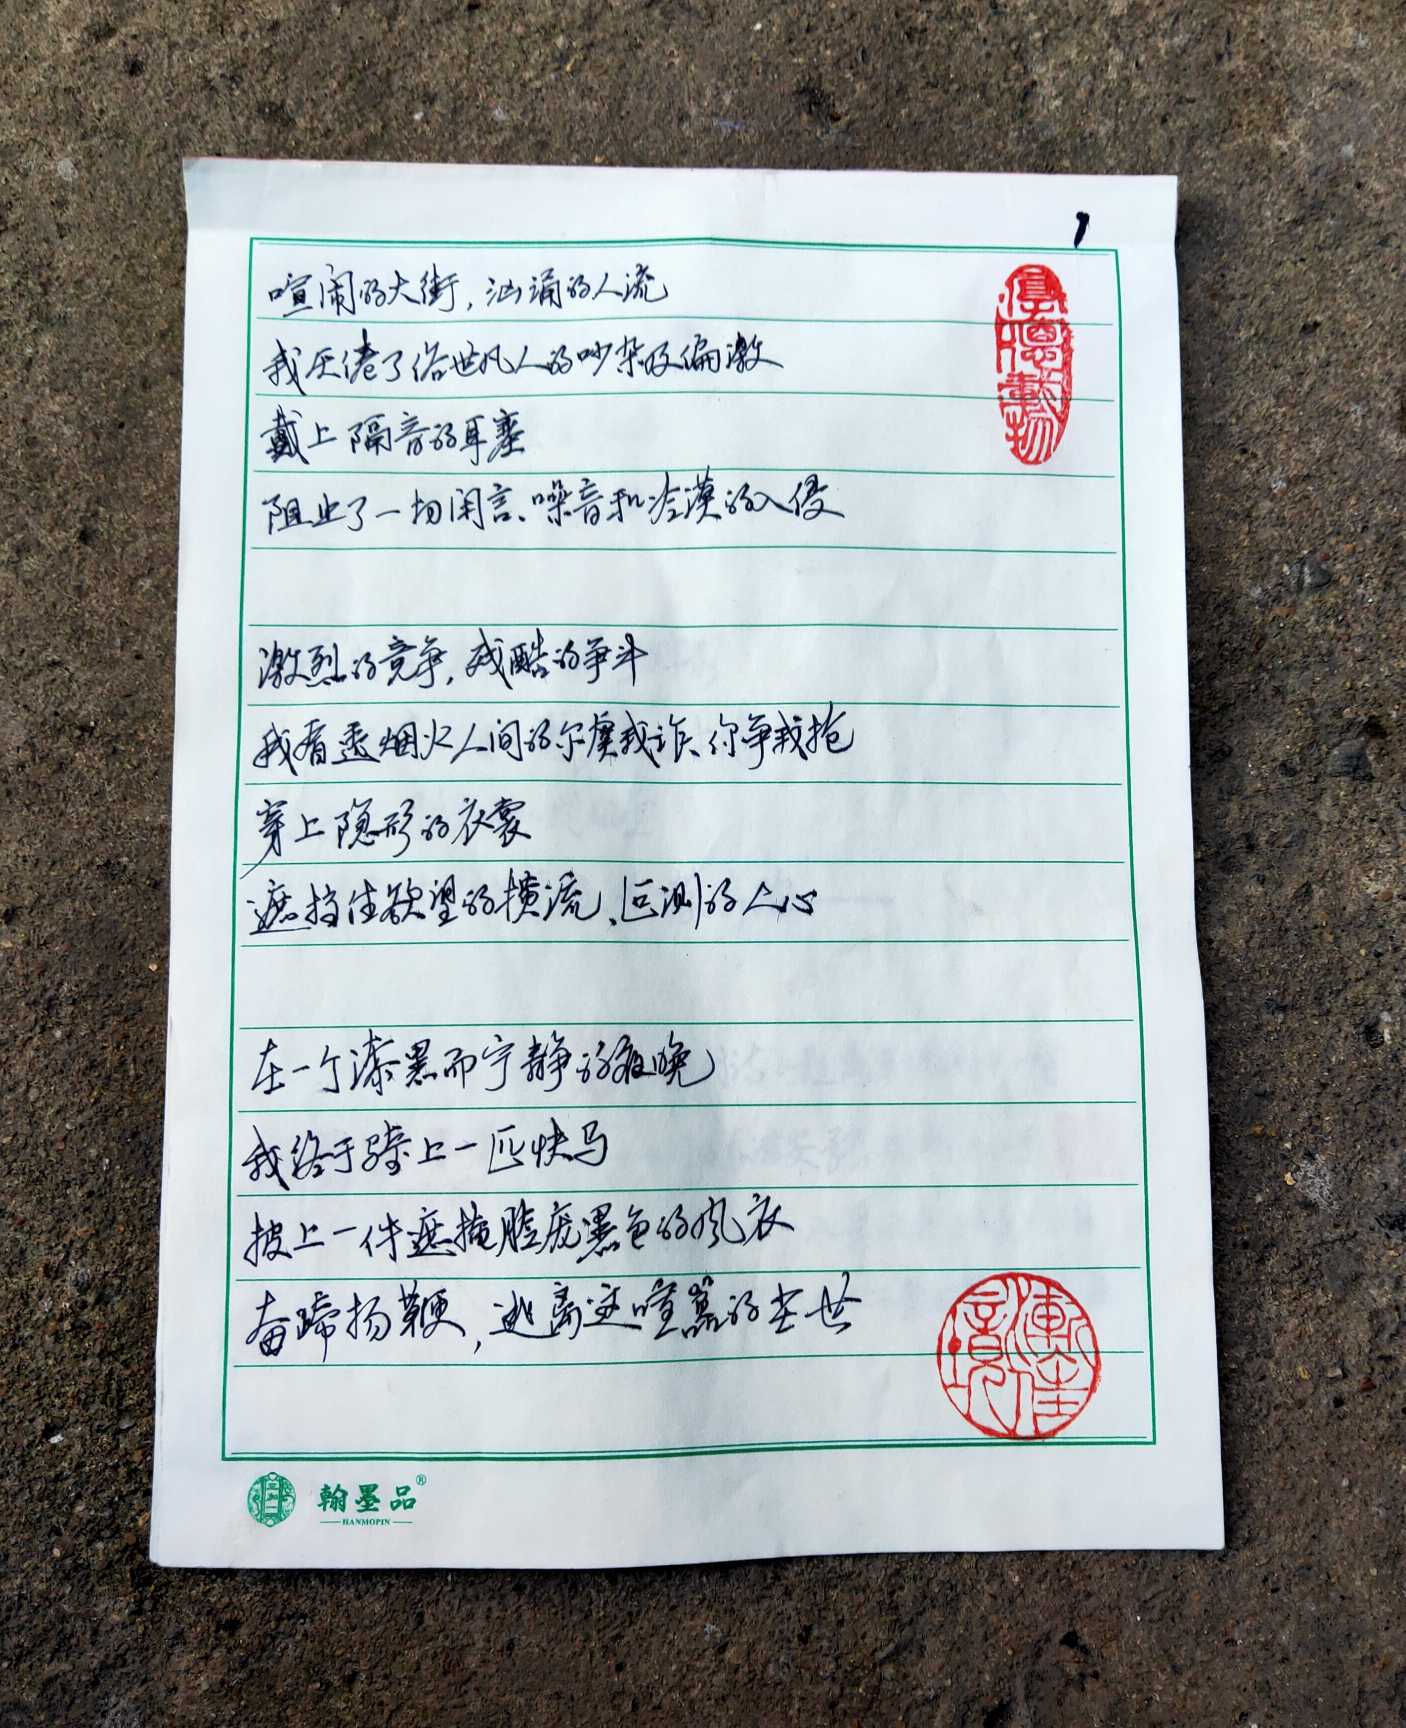 1
喧闹的大街，汹涌的人流
我厌倦了俗世凡人的吵杂及偏激
戴上隔音的耳塞
阻止了一切闲言、噪音和冷漠的入侵
激烈的竞争，残酷的争斗
我看透烟火人间的尔虞我诈、你争我抢
穿上隐形的衣裳
遮挡住欲望的横流、叵测的人心
在一个漆黑而宁静的夜晚
我终于骑上一匹快马
披上一件遮掩脸庞黑色的风衣
奋蹄扬鞭，逃离这喧嚣的尘世
厚德载物
渐入佳境
翰墨品®
HANMOPIN